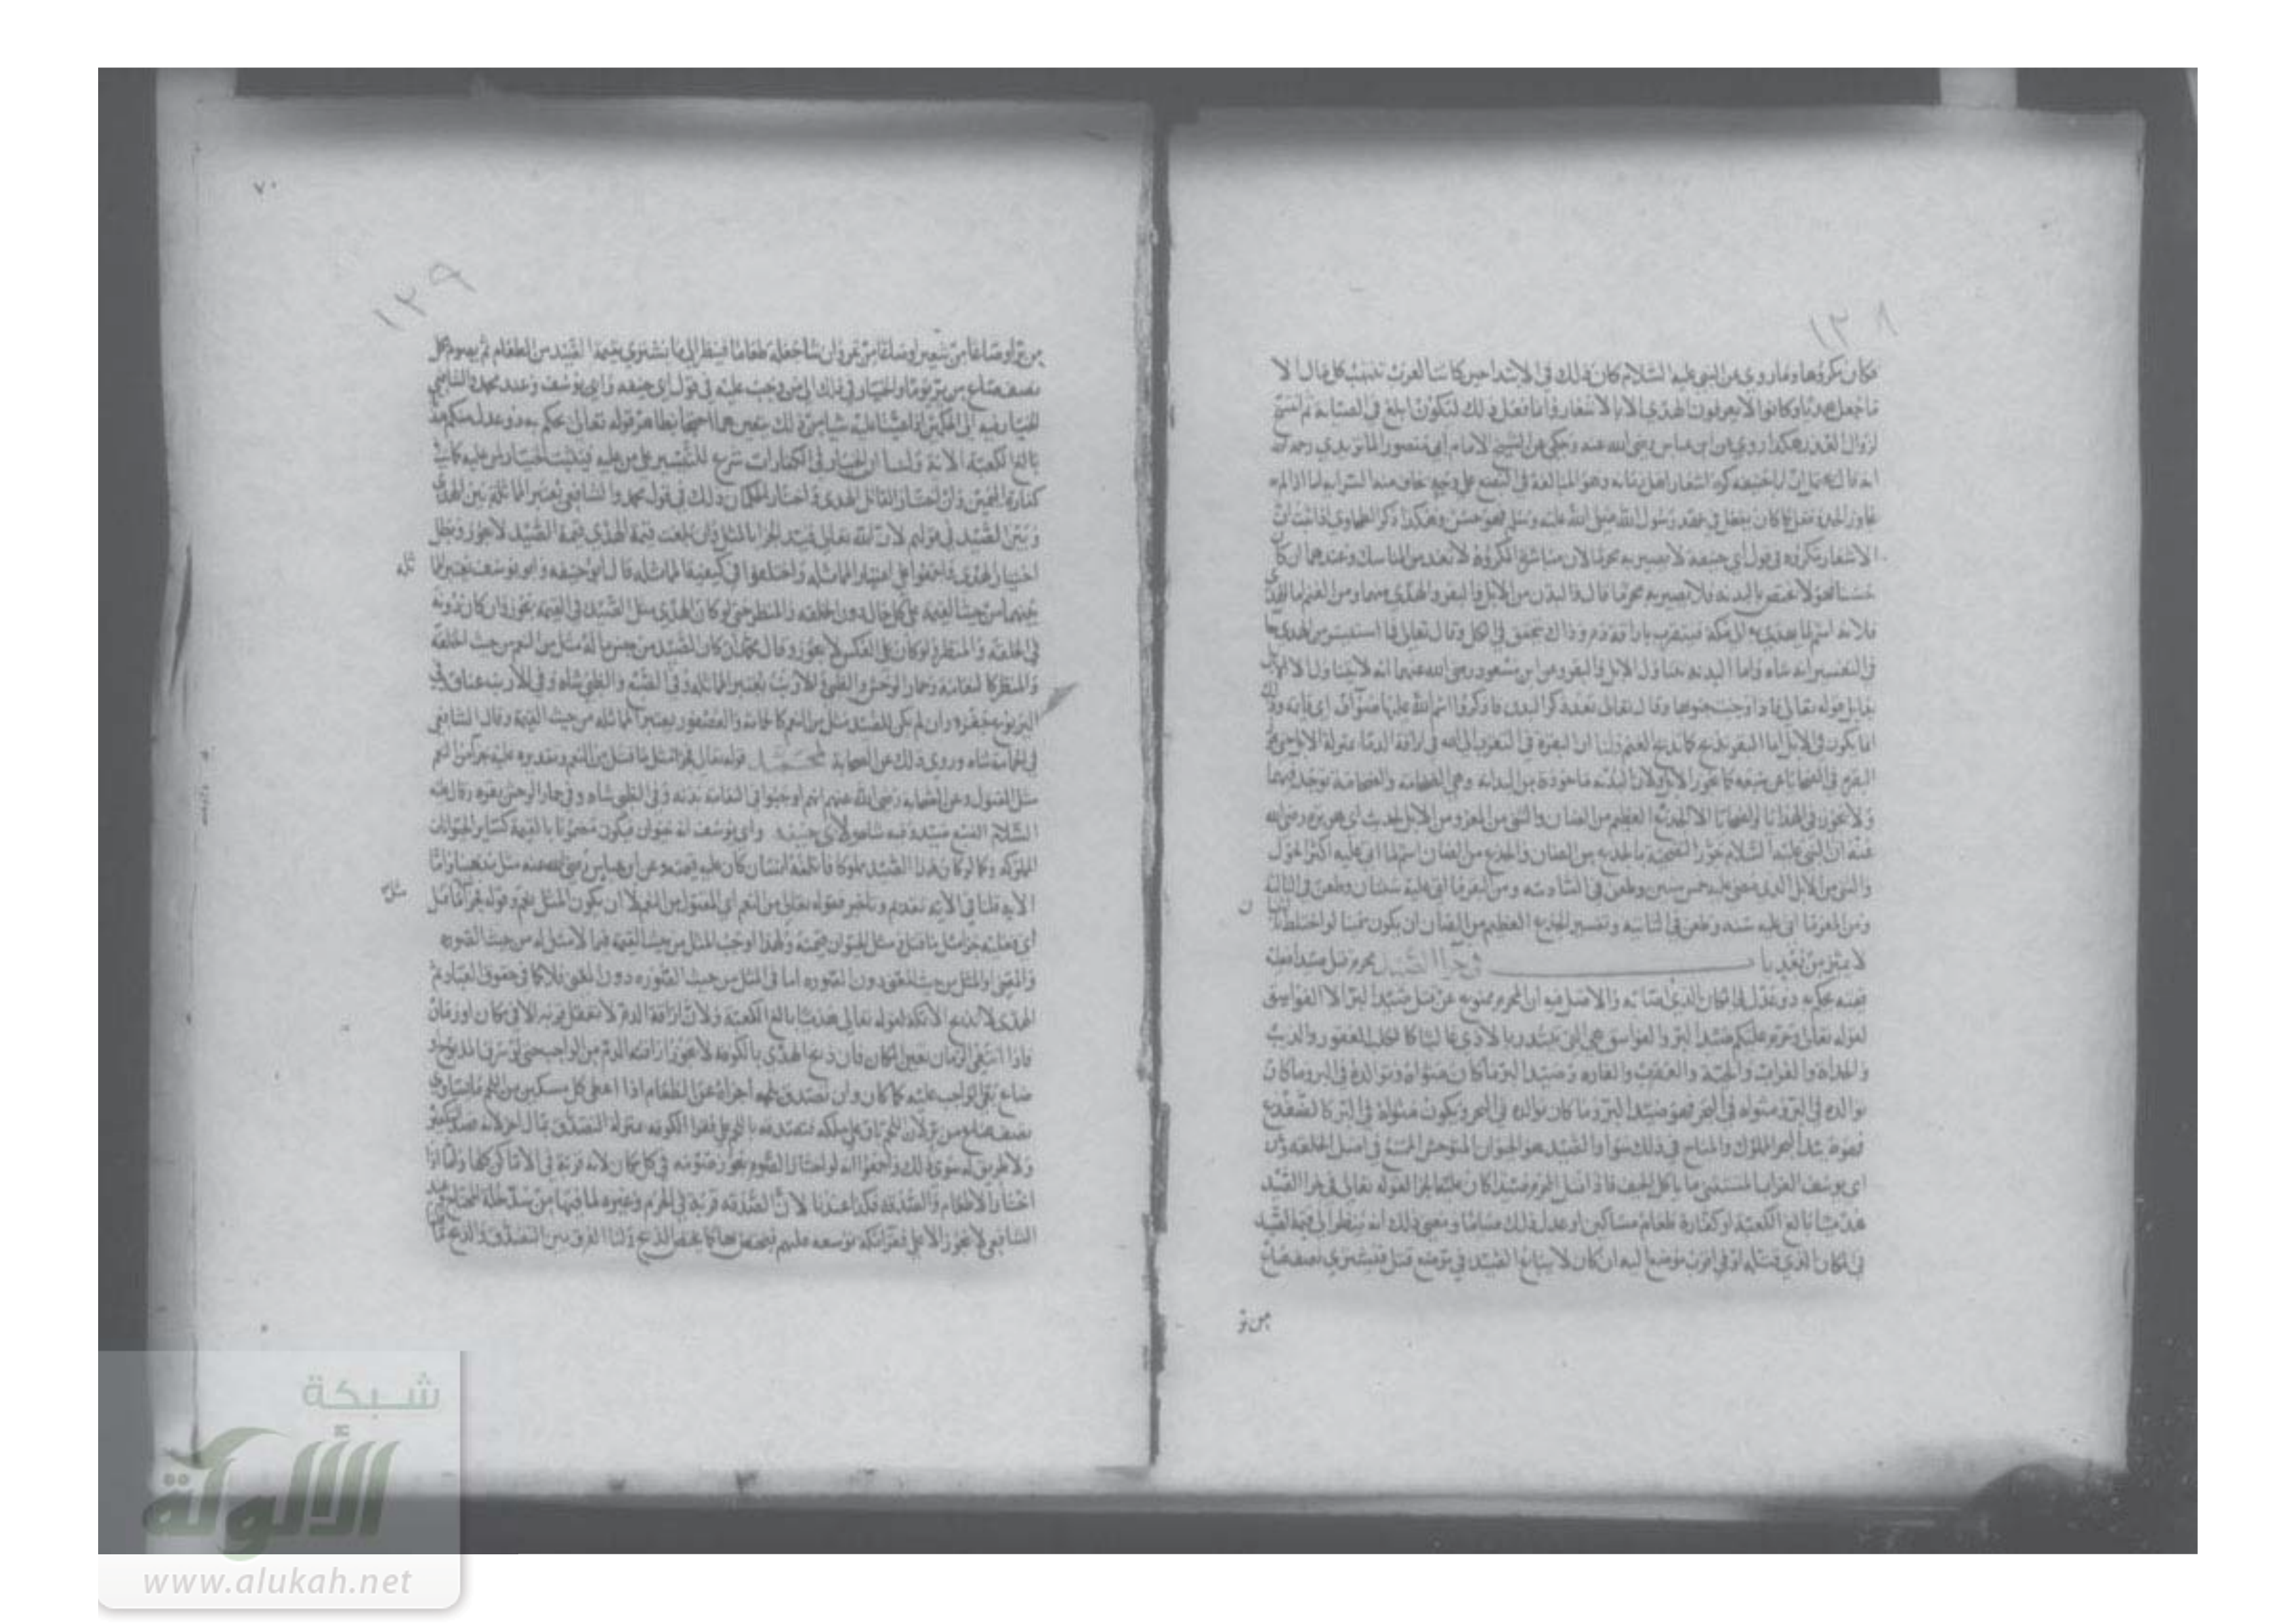 ١٢٨
فكان مكروها وما روي عن النبي عليه السلام كان ذلك في الابتدا حين كانت العرب تنتهب كل مال الا
ما جعل هديا وكانوا لا يعرفون الهدي الا بالاشعار وانما فعل ذلك ليكون ابلغ في الصيانة ثم انتسخ
لزوال العذر هكذا روي عن ابن عباس رضي الله عنه وحكي عن الشيخ الامام ابي منصور الماتريدي رحمه الله
انه قال ان ابا حنيفة كره اشعار اهل زمانه وهو المبالغة في البضع على وجه يخاف منه السراية اما اذا لم
الحد وفعل كما كان يفعل في عهد رسول الله صلى الله عليه وسلم فهو حسن وهكذا ذكر الطحاوي
الاشعار مكروه في قول ابي حنيفة لا يصير به محرما لان مباشرة المكروه لا تعد من المناسك وعندهما ان كان
حسنا فهو لا يختص بالبدنة فلا يصير به محرما قال والبدن من الابل والبقر والهدي منهما ومن الغنم اما الهدي
فلانه اسم لما يهدى الى مكة فيتقرب باراقة دم وذلك يتحقق في الكل وقال تعالى فما استيسر من الهدي جا
في التفسير انه شاه واما البدنة تتناول الابل والبقر وعن ابن مسعود رضي الله عنهما انه لا يتناول الا الابل
بدليل قوله تعالى فاذا وجبت جنوبها وقال تعالى بعد ذكر البدن فاذكروا اسم الله عليها صواف اي قايمة وذلك
انما يكون في الابل اما البقر يذبح كما يذبح الغنم ولنا ان البقرة في التقرب الى الله في اراقة الدما بمنزلة الابل حتى
البقرة في الضحايا عن سبعة كما تجوز الابل ولان البدنة ماخوذة من البدانة وهي الضخامة والضخامة توجد فيهما
ولا يجوز في الهدايا والضحايا الا الجذع العظيم من الضان والثني من المعز ومن الابل لحديث ابي هريرة رضي الله
عنه ان النبي عليه السلام جوز التضحية بالجذع من الضان والجذع من الضان اسم لما اتى عليه اكثر الحول
والثني من الابل الذي مضى عليه خمس سنين وطعن في السادسة ومن البقر ما اتى عليه سنتان وطعن في الثالثة
ومن المعز ما اتى عليه سنة وطعن في الثانية وتفسير الجذع العظيم من الضان ان يكون سمينا لو اختلط
لا يميز من بعد باب في جزا الصيد محرم قتل صيدا فعليه
قيمته يحكم به ذو عدل في المكان الذي اصابه والاصل فيه ان المحرم ممنوع عن قتل صيد البر الا الفواسق
لقوله تعالى وحرم عليكم صيد البر والفواسق هي التي تبتدر بالاذى غالبا كالكلب العقور والذيب
والحداة والغراب والحية والعقرب والفارة وصيد البر ما كان مثواه وتوالده في البر وما كان
توالده في البر ومثواه في البحر فهو صيد البر وما كان توالده في البحر ويكون مثواه في البر كالضفدع
فهو صيد البحر المملوك والمباح في ذلك سوا والصيد هو الحيوان المتوحش الممتنع في اصل الخلقة وعن
ابي يوسف الغراب المستثنى ما ياكل الجيف فاذا قتل المحرم صيدا كان عليه الجزا لقوله تعالى في جزا الصيد
هديا بالغ الكعبة او كفارة طعام مساكين او عدل ذلك صياما ومعنى ذلك انه ينظر الى قيمة الصيد
في المكان الذي قتله او في اقرب موضع اليه ان كان لا يباع الصيد في موضع قتل فيشتري نصف صاع
من بر
٧٠
١٢٩
من بر او صاعا من شعير او صاعا من تمر وان شا جعله طعاما فينظر الى ما يشتري بقيمة الصيد من الطعام ثم يصوم لكل
نصف صاع من بر يوما والخيار في ذلك الى من وجب عليه في قول ابي حنيفه وابي يوسف وعند محمد والشافعي
الخيار فيه الى الحكمين اذا عينا عليه شيا من ذلك يتعين هما احتجا بظاهر قوله تعالى يحكم به ذوا عدل منكم هديا
بالغ الكعبة الاية ولنا ان الخيار في الكفارات شرع للتيسير على من عليه فيثبت اختيار من عليه كما في
كفارة اليمين وان اختار القاتل الهدي او اختار الحكمان ذلك في قول محمد والشافعي تعتبر المماثلة بين الهدي
وبين الصيد في قولهم لان الله تعالى قيد الجزا بالمثل فان بلغت قيمة الهدي قيمة الصيد لا يجوز وبطل
اختيار الهدي فاجمعوا على اعتبار المماثله واختلفوا في كيفية المماثله قال ابو حنيفه وابو يوسف تعتبر المماثلة
بينهما من حيث القيمة على كل حال دون الخلقه والمنظر حتى لو كان الهدي مثل الصيد في القيمة يجوز وان كان دونه
في الخلقة والمنظر ولو كان على العكس لا يجوز وقال محمد ان كان الصيد من جنس ما له مثل من النعم من حيث الخلقة
والمنظر كالنعامة وحمار الوحش والظبي والارنب تعتبر المماثله وفي الضبع والظبي شاه وفي الارنب عناق وفي
اليربوع جفره وان لم يكن للصيد مثل من النعم كالحمامة والعصفور يعتبر المماثله من حيث القيمة وقال الشافعي
في الحمامة شاه وروي ذلك عن الصحابة لمحمد قوله تعالى فجزا مثل ما قتل من النعم وتقديره عليه جزا من النعم
مثل المقتول وعن الصحابه رضي الله عنهم انهم اوجبوا في النعامة بدنه وفي الظبي شاه وفي حمار الوحش بقره وقال عليه
السلام الضبع صيد وفيه شاه ولابي حنيفه وابي يوسف انه حيوان فيكون مضمونا بالقيمة كساير الحيوانات
المملوكه وكما لو كان هذا الصيد مملوكا فاتلفه انسان كان عليه قيمته وعن ابن عباس رضي الله عنه مثل مذهبنا واما
الاية قلنا في الاية تقديم وتاخير فقوله تعالى من النعم اي المقتول من النعم لا ان يكون المثل نعم وقوله فجزا مثل ما قتل
اي فعليه جزا مثل ما قتل ومثل الحيوان قيمته ولهذا اوجب المثل من حيث القيمة فيما لا مثل له من حيث الصوره
والمعنى والمثل من حيث المعنى دون الصوره اما في المثل من حيث الصوره دون المعنى فلا كما في حقوق العباد ثم
الهدي لا يذبح الا بمكة لقوله تعالى هديا بالغ الكعبة ولان اراقة الدم لا تعقل قربة الا في مكان او زمان
فاذا انتفى الزمان تعين المكان فان ذبح الهدي بالكوفه لا يجوز اراقته الدم من الواجب حتى لو سرق المذبوح او
ضاع بقي الواجب عليه كما كان وان تصدق بلحمه اجزاه عن الطعام اذا اعطى كل مسكين من اللحم ما يساوي
نصف صاع من بر لان اللحم باق على ملكه فتصدقه باللحم على فقرا الكوفه بمنزلة التصدق بمال اخر لانه
ولا طريق له سوى ذلك واجمعوا انه لو اختار الصوم يجوز صومه في كل مكان لانه قربة في الاماكن كلها واما اذا
اختار الاطعام والصدقه فكذا عندنا لان الصدقه قربة في الحرم وغيره لما فيها من سد خلة المحتاج وعند
الشافعي لا يجوز الا على فقرا مكه توسعه عليهم فيختص بها كما يختص الذبح ولنا الفرق بين التصدق والذبح
شبكة
الألوكة
www.alukah.net